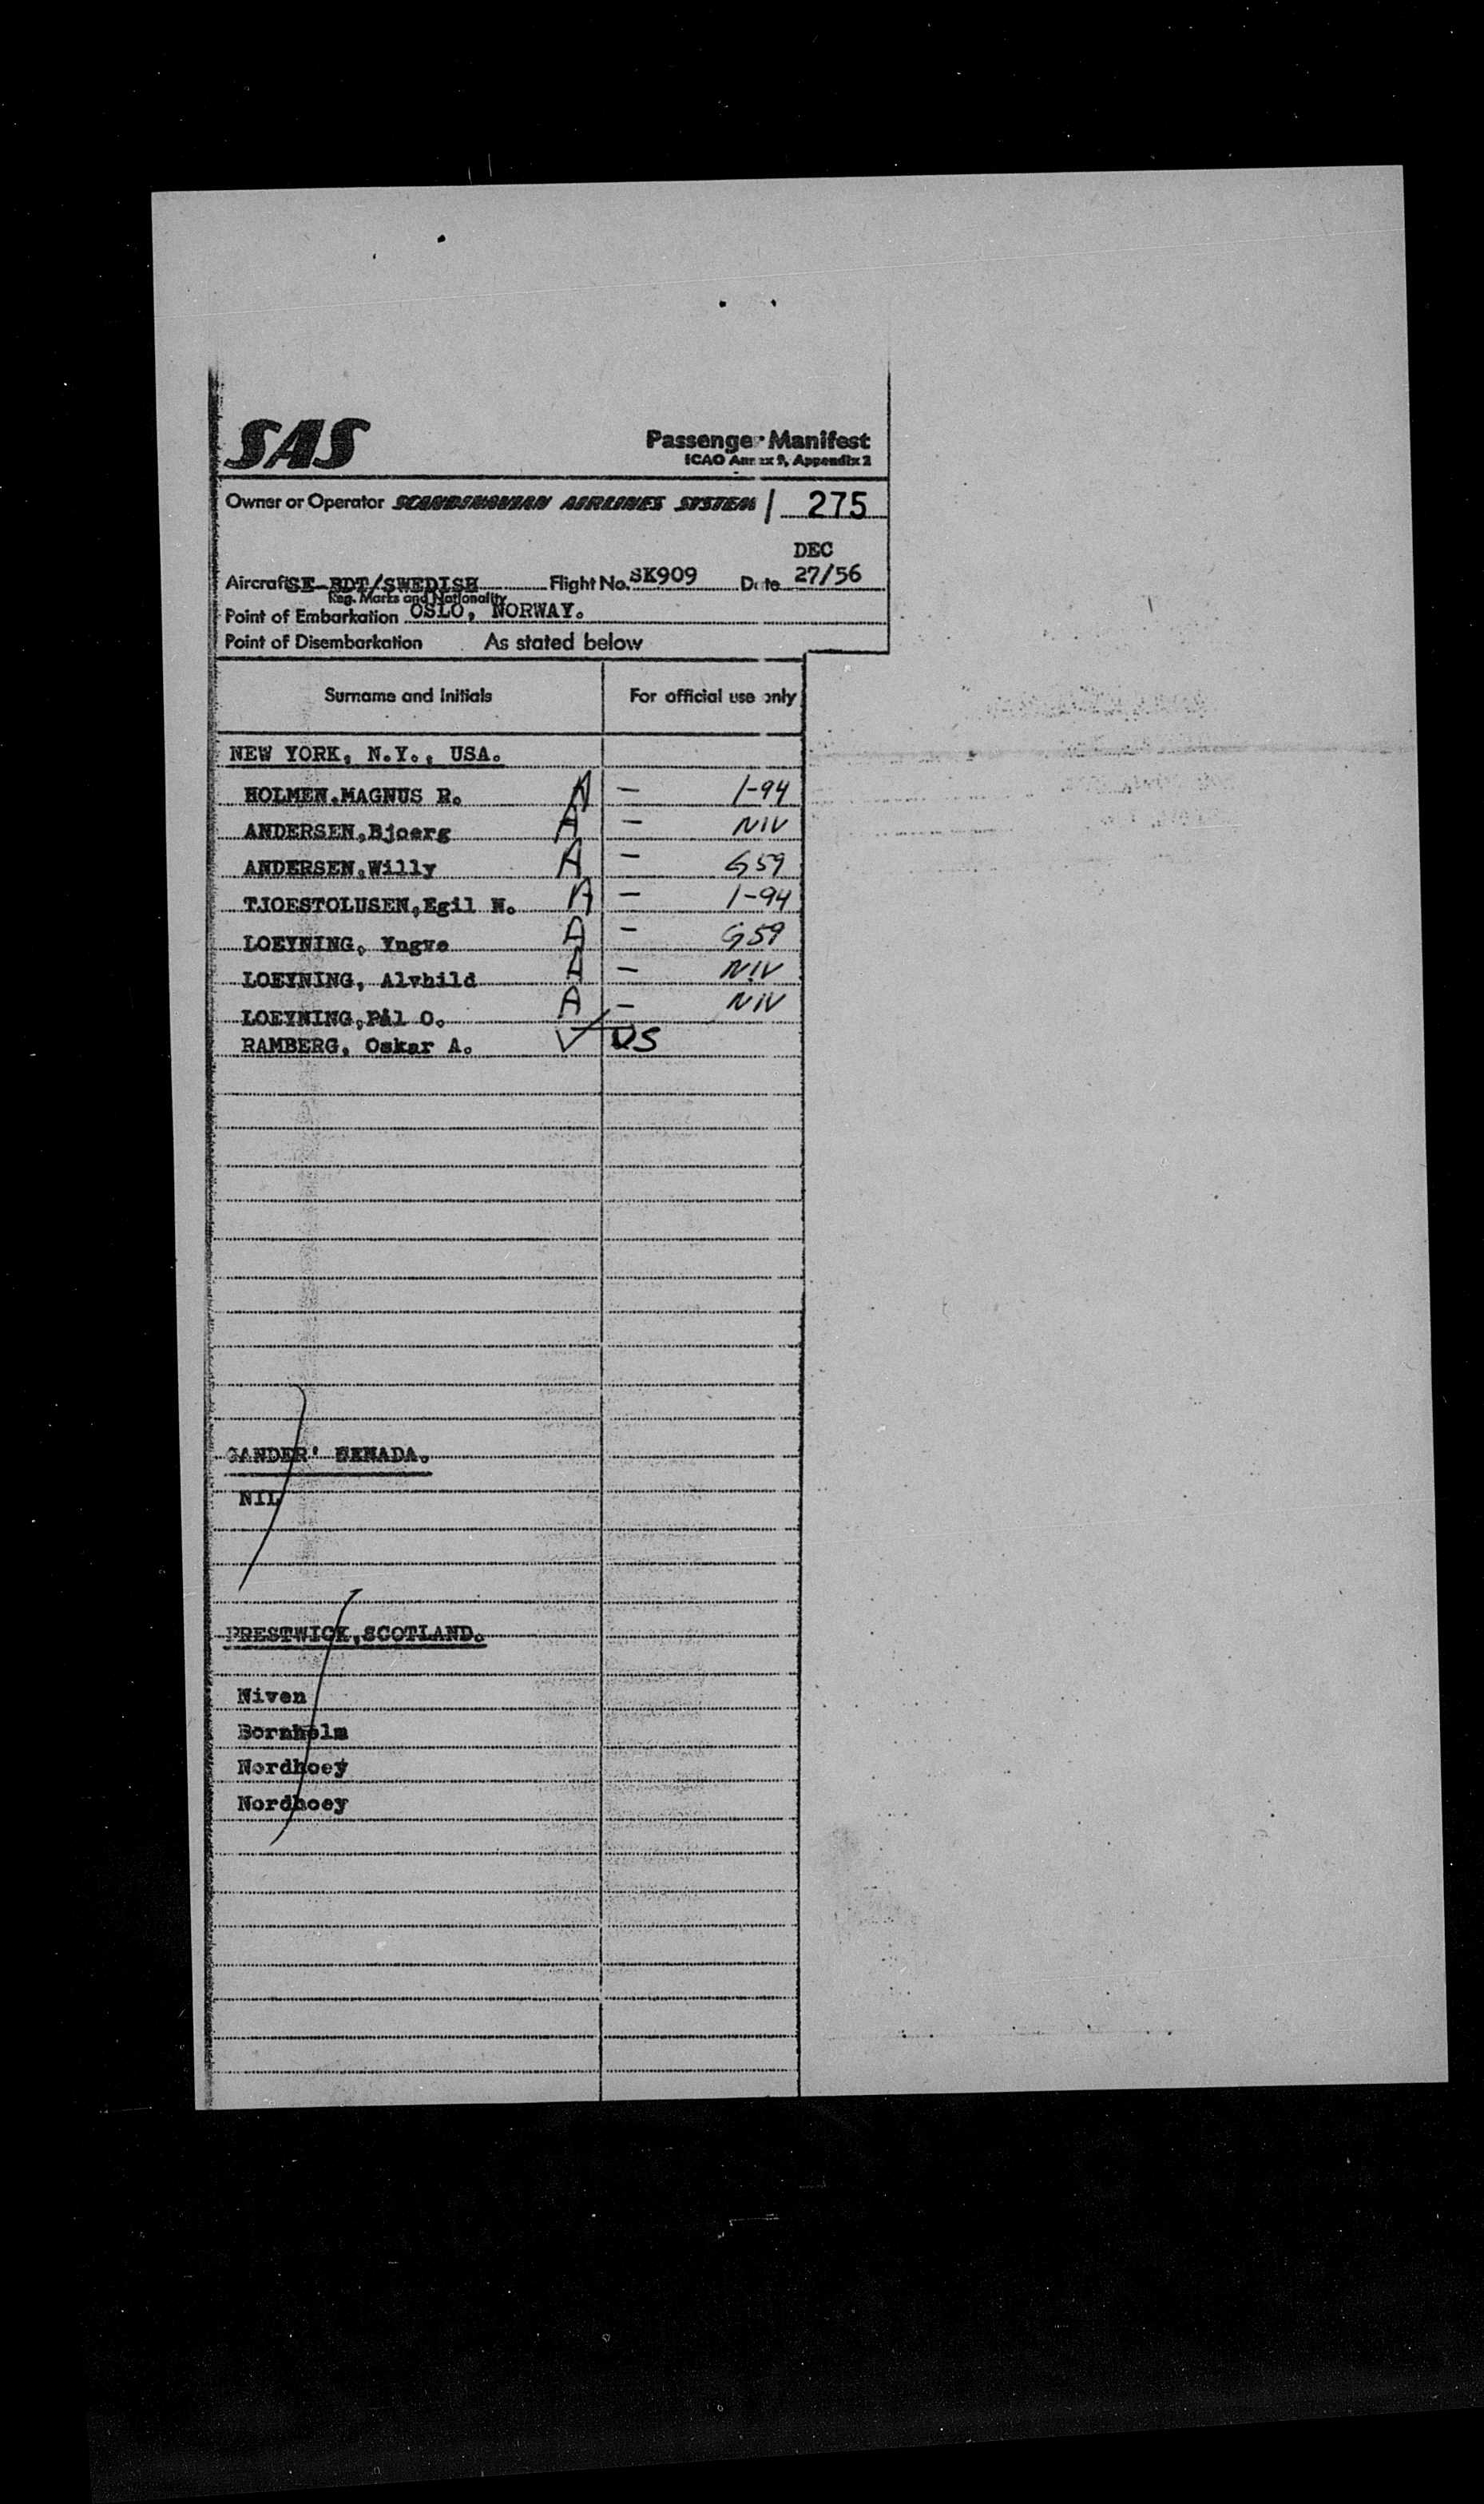 SAS
Passenger Manifest
ICAO Annex 9, Appendix 2
Owner or Operator SCANDINAVIAN AIRLINES SYSTEM / 275
DEC
Aircraft SE-BDT/SWEDISH Flight No. SK909 Date 27/56
Reg. Marks and Nationality
Point of Embarkation OSLO, NORWAY.
Point of Disembarkation As stated below
Surname and Initials For official use only
NEW YORK, N.Y., USA.
HOLMEN.MAGNUS R. A — 1-94
ANDERSEN,Bjoerg A — NIV
ANDERSEN,Willy A — G59
TJOESTOLUSEN,Egil N. A — 1-94
LOEYNING, Yngve A — G59
LOEYNING, Alvhild A — NIV
LOEYNING,Pål O. A — NIV
RAMBERG, Oskar A. US
GANDER' CENADA.
NIL
PRESTWICK,SCOTLAND.
Niven
Bornholm
Nordhoey
Nordhoey